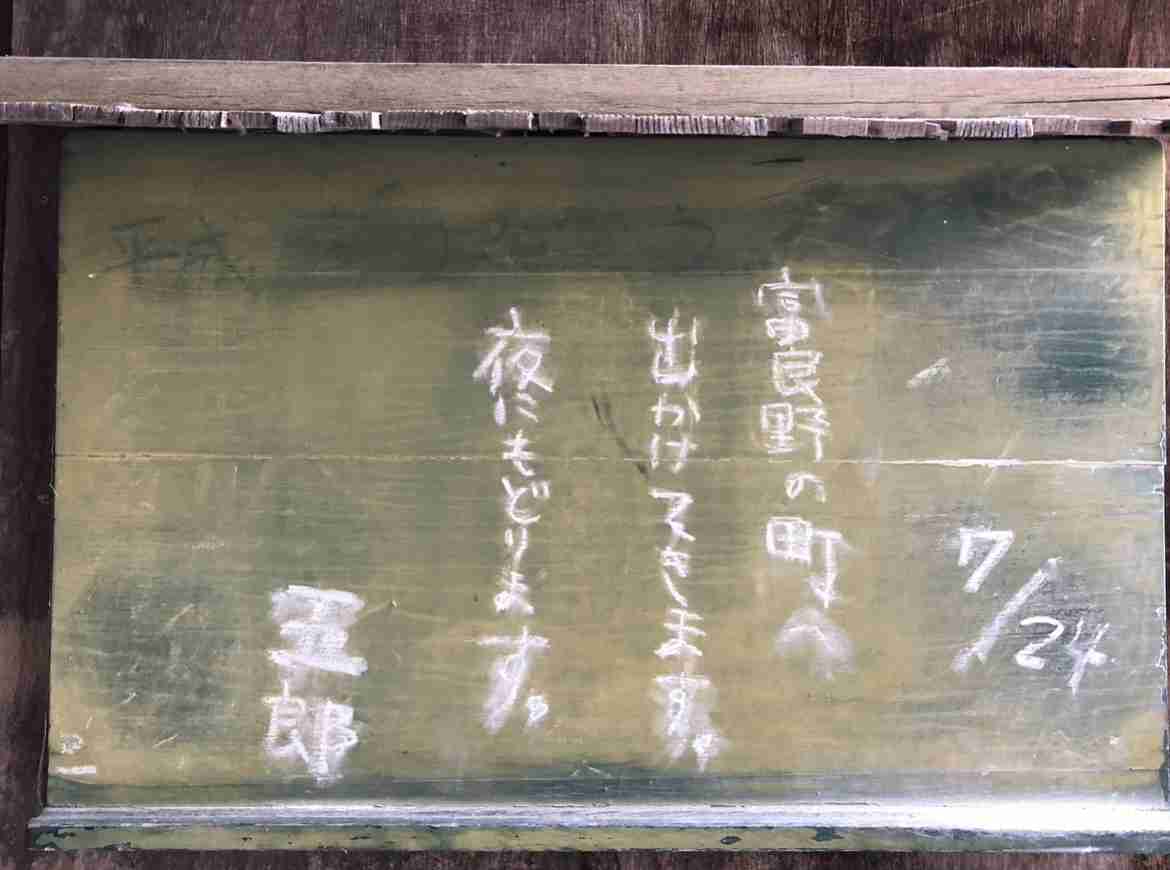 7/24
富良野の町へ
出かけてきます。
夜にもどります。
五郎
平成